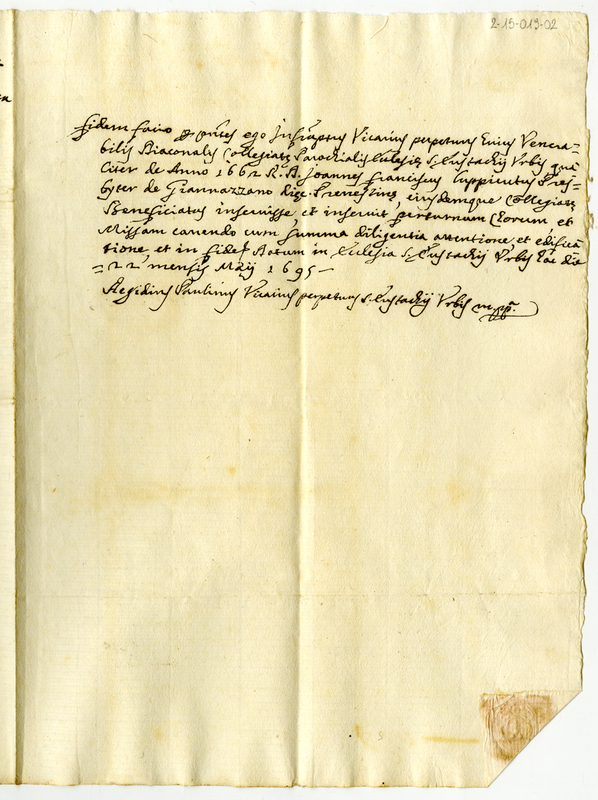 2-15-013-02
fidem facio p pntes ego Infraptus Vicarius perpetuus huius Venera=
bilis Diaconalis Collegiatę Parochialis Eccłesię S. Eustachij Vrbis qua
liter de Anno 1662 R. D. Joannes Franciscus Pres=
byter de Giannazzano Preneſtinę, eiusdemque Collegiatę
Beneficiatus inservisse, et inservit Chorum et
Missam canendo cum summa diligentia attentione, et edifica
tione, et in fidem Datum in Ecclesia S. Eustachij Vrbis hac die
= 22 mensis Maij 1695 –
Aegidius Paulinus Vicarius perpetuus S. Eustachij Vrbis m. pp.ª